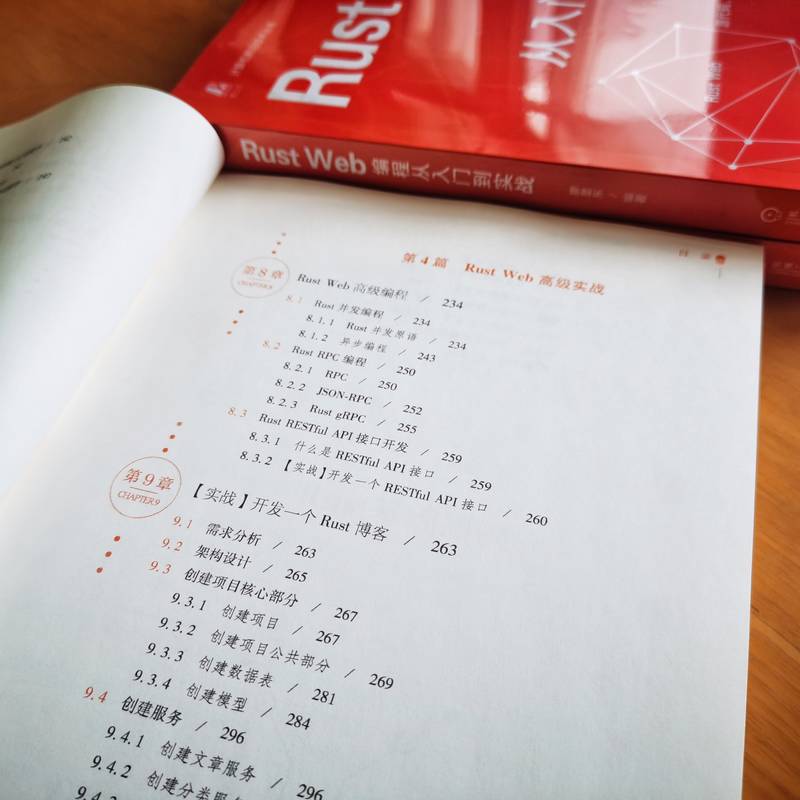 Rust
从入门
Rust Web
Rust Web 编程从入门到实战
廖显东 / 编著
目 录
第4篇 Rust Web 高级实战
第8章
CHAPTER 8
Rust Web 高级编程 / 234
8.1 Rust 并发编程 / 234
8.1.1 Rust 并发原语 / 234
8.1.2 异步编程 / 243
8.2 Rust RPC 编程 / 250
8.2.1 RPC / 250
8.2.2 JSON-RPC / 252
8.2.3 Rust gRPC / 255
8.3 Rust RESTful API 接口开发 / 259
8.3.1 什么是 RESTful API 接口 / 259
8.3.2 【实战】开发一个 RESTful API 接口 / 260
第9章
CHAPTER 9
【实战】开发一个 Rust 博客 / 263
9.1 需求分析 / 263
9.2 架构设计 / 265
9.3 创建项目核心部分 / 267
9.3.1 创建项目 / 267
9.3.2 创建项目公共部分 / 269
9.3.3 创建数据表 / 281
9.3.4 创建模型 / 284
9.4 创建服务 / 296
9.4.1 创建文章服务 / 296
9.4.2 创建分类服务